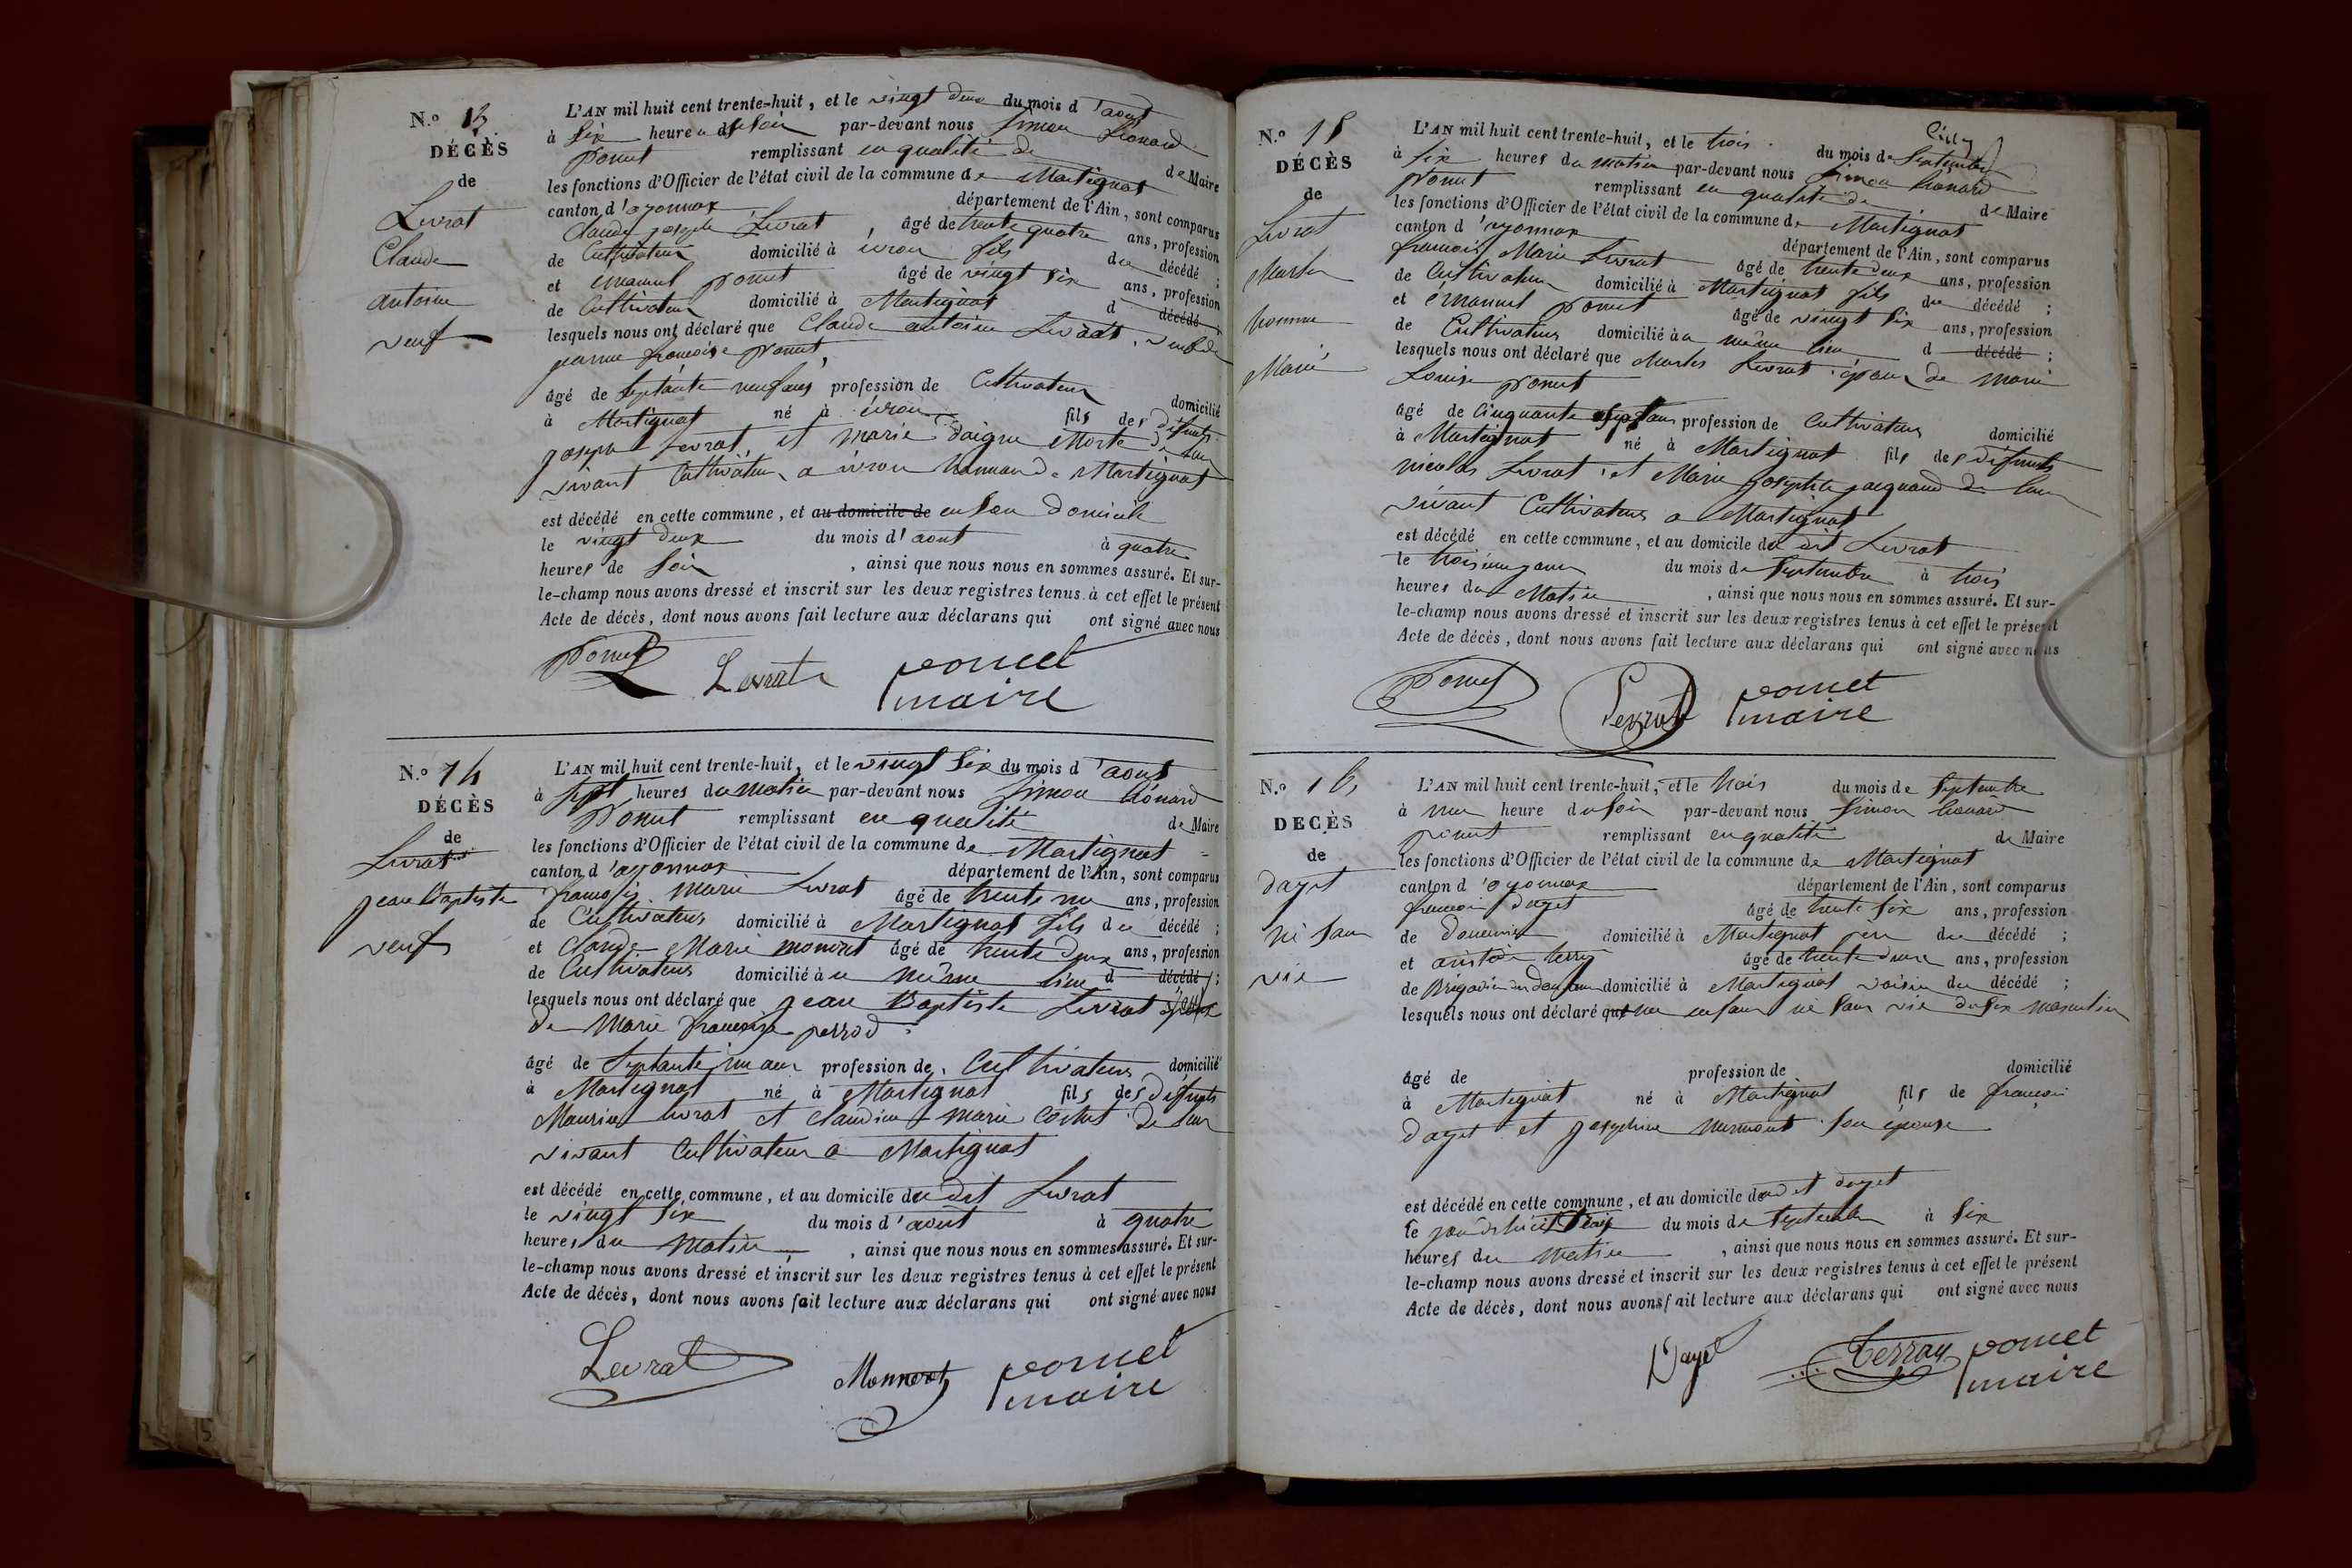 N.o 13
DÉCÈS
de
Levrat
Claude
antoine
veuf
L'AN mil huit cent trente-huit, et le vingt deux du mois d'aout
à six heures du soir par-devant nous Simon Léonard
ponet remplissant en qualité de de Maire
les fonctions d'Officier de l'état civil de la commune de Martignat
canton d'oyonnax département de l'Ain, sont comparus
Claude joseph Levrat âgé de trente quatre ans, profession
de Cultivateur domicilié à évron fils du décédé ;
et émanuel ponet âgé de vingt six ans, profession
de Cultivateur domicilié à Martignat d décédé ;
lesquels nous ont déclaré que Claude antoine Levrat, veuf de
jeanne françoise ponet,
âgé de septante neuf ans profession de Cultivateur domicilié
à Martignat né à évron fils des défunts
joseph Levrat et marie daigue Morte de leur
vivant Cultivateur a évron hameau de Martignat
est décédé en cette commune, et au domicile de en son Domicile
le vingt deux du mois d'aout à quatre
heures de soir, ainsi que nous nous en sommes assuré. Et sur-
le-champ nous avons dressé et inscrit sur les deux registres tenus à cet effet le présent
Acte de décès, dont nous avons fait lecture aux déclarans qui ont signé avec nous
Ponet Levrat ponet
maire
N.o 14
DÉCÈS
de
Levrat
jean Baptiste
veuf
L'AN mil huit cent trente-huit, et le vingt six du mois d'aout
à sept heures du matin par-devant nous Simon Léonard
ponet remplissant en qualité de Maire
les fonctions d'Officier de l'état civil de la commune de Martignat
canton d'oyonnax département de l'Ain, sont comparus
françois marie Levrat âgé de trente un ans, profession
de Cultivateur domicilié à Martignat fils du décédé ;
et Claude Marie monnet âgé de trente deux ans, profession
de Cultivateur domicilié à u même lieu d décédé ;
lesquels nous ont déclaré que jean Baptiste Levrat époux
de Marie françoise perrod
âgé de septante un ans profession de Cultivateur domicilié
à Martignat né à Martignat fils des défunts
Maurice Levrat et Claudine marie de leur
vivant Cultivateur a Martignat
est décédé en cette commune, et au domicile du dit Levrat
le vingt six du mois d'aout à quatre
heures du Matin, ainsi que nous nous en sommes assuré. Et sur-
le-champ nous avons dressé et inscrit sur les deux registres tenus à cet effet le présent
Acte de décès, dont nous avons fait lecture aux déclarans qui ont signé avec nous
Levrat Monneret ponet
maire
N.o 15
DÉCÈS
de
Levrat
Marten
homme
Marié
L'AN mil huit cent trente-huit, et le trois du mois de Septembre
à six heures du matin par-devant nous Simon Léonard
ponet remplissant en qualité de de Maire
les fonctions d'Officier de l'état civil de la commune de Martignat
canton d'oyonnax département de l'Ain, sont comparus
françois Marie Levrat âgé de trente deux ans, profession
de Cultivateur domicilié à Martignat fils du décédé ;
et émanuel ponet âgé de vingt six ans, profession
de Cultivateur domicilié à u même lieu d décédé ;
lesquels nous ont déclaré que Levrat époux de marie
Louise ponet
âgé de Cinquante sept ans profession de Cultivateur domicilié
à Martignat né à Martignat fils des défunts
nicolas Levrat et Marie josephte jacquand de leur
vivant Cultivateur a Martignat
est décédé en cette commune, et au domicile du dit Levrat
le troisième jour du mois de Septembre à trois
heures du Matin, ainsi que nous nous en sommes assuré. Et sur-
le-champ nous avons dressé et inscrit sur les deux registres tenus à cet effet le présent
Acte de décès, dont nous avons fait lecture aux déclarans qui ont signé avec nous
Ponet Levrat ponet
maire
N.o 16
DÉCÈS
de
dayet
né sans
vie
L'AN mil huit cent trente-huit, et le trois du mois de Septembre
à une heure du soir par-devant nous Simon Léonard
ponet remplissant en qualité de Maire
les fonctions d'Officier de l'état civil de la commune de Martignat
canton d'oyonnax département de l'Ain, sont comparus
françois dayet âgé de trente six ans, profession
de douanier domicilié à Martignat père du décédé ;
et aristide terray âgé de trente deux ans, profession
de Brigadier des douanes domicilié à Martignat voisin du décédé ;
lesquels nous ont déclaré que un enfant né sans vie du sex masculin
âgé de profession de domicilié
à Martignat né à Martignat fils de françois
dayet et josephine mermont son épouse
est décédé en cette commune, et au domicile du dit dayet
le jour du mois de Septembre à six
heures du matin, ainsi que nous nous en sommes assuré. Et sur-
le-champ nous avons dressé et inscrit sur les deux registres tenus à cet effet le présent
Acte de décès, dont nous avons fait lecture aux déclarans qui ont signé avec nous
Dayet Terray ponet
maire